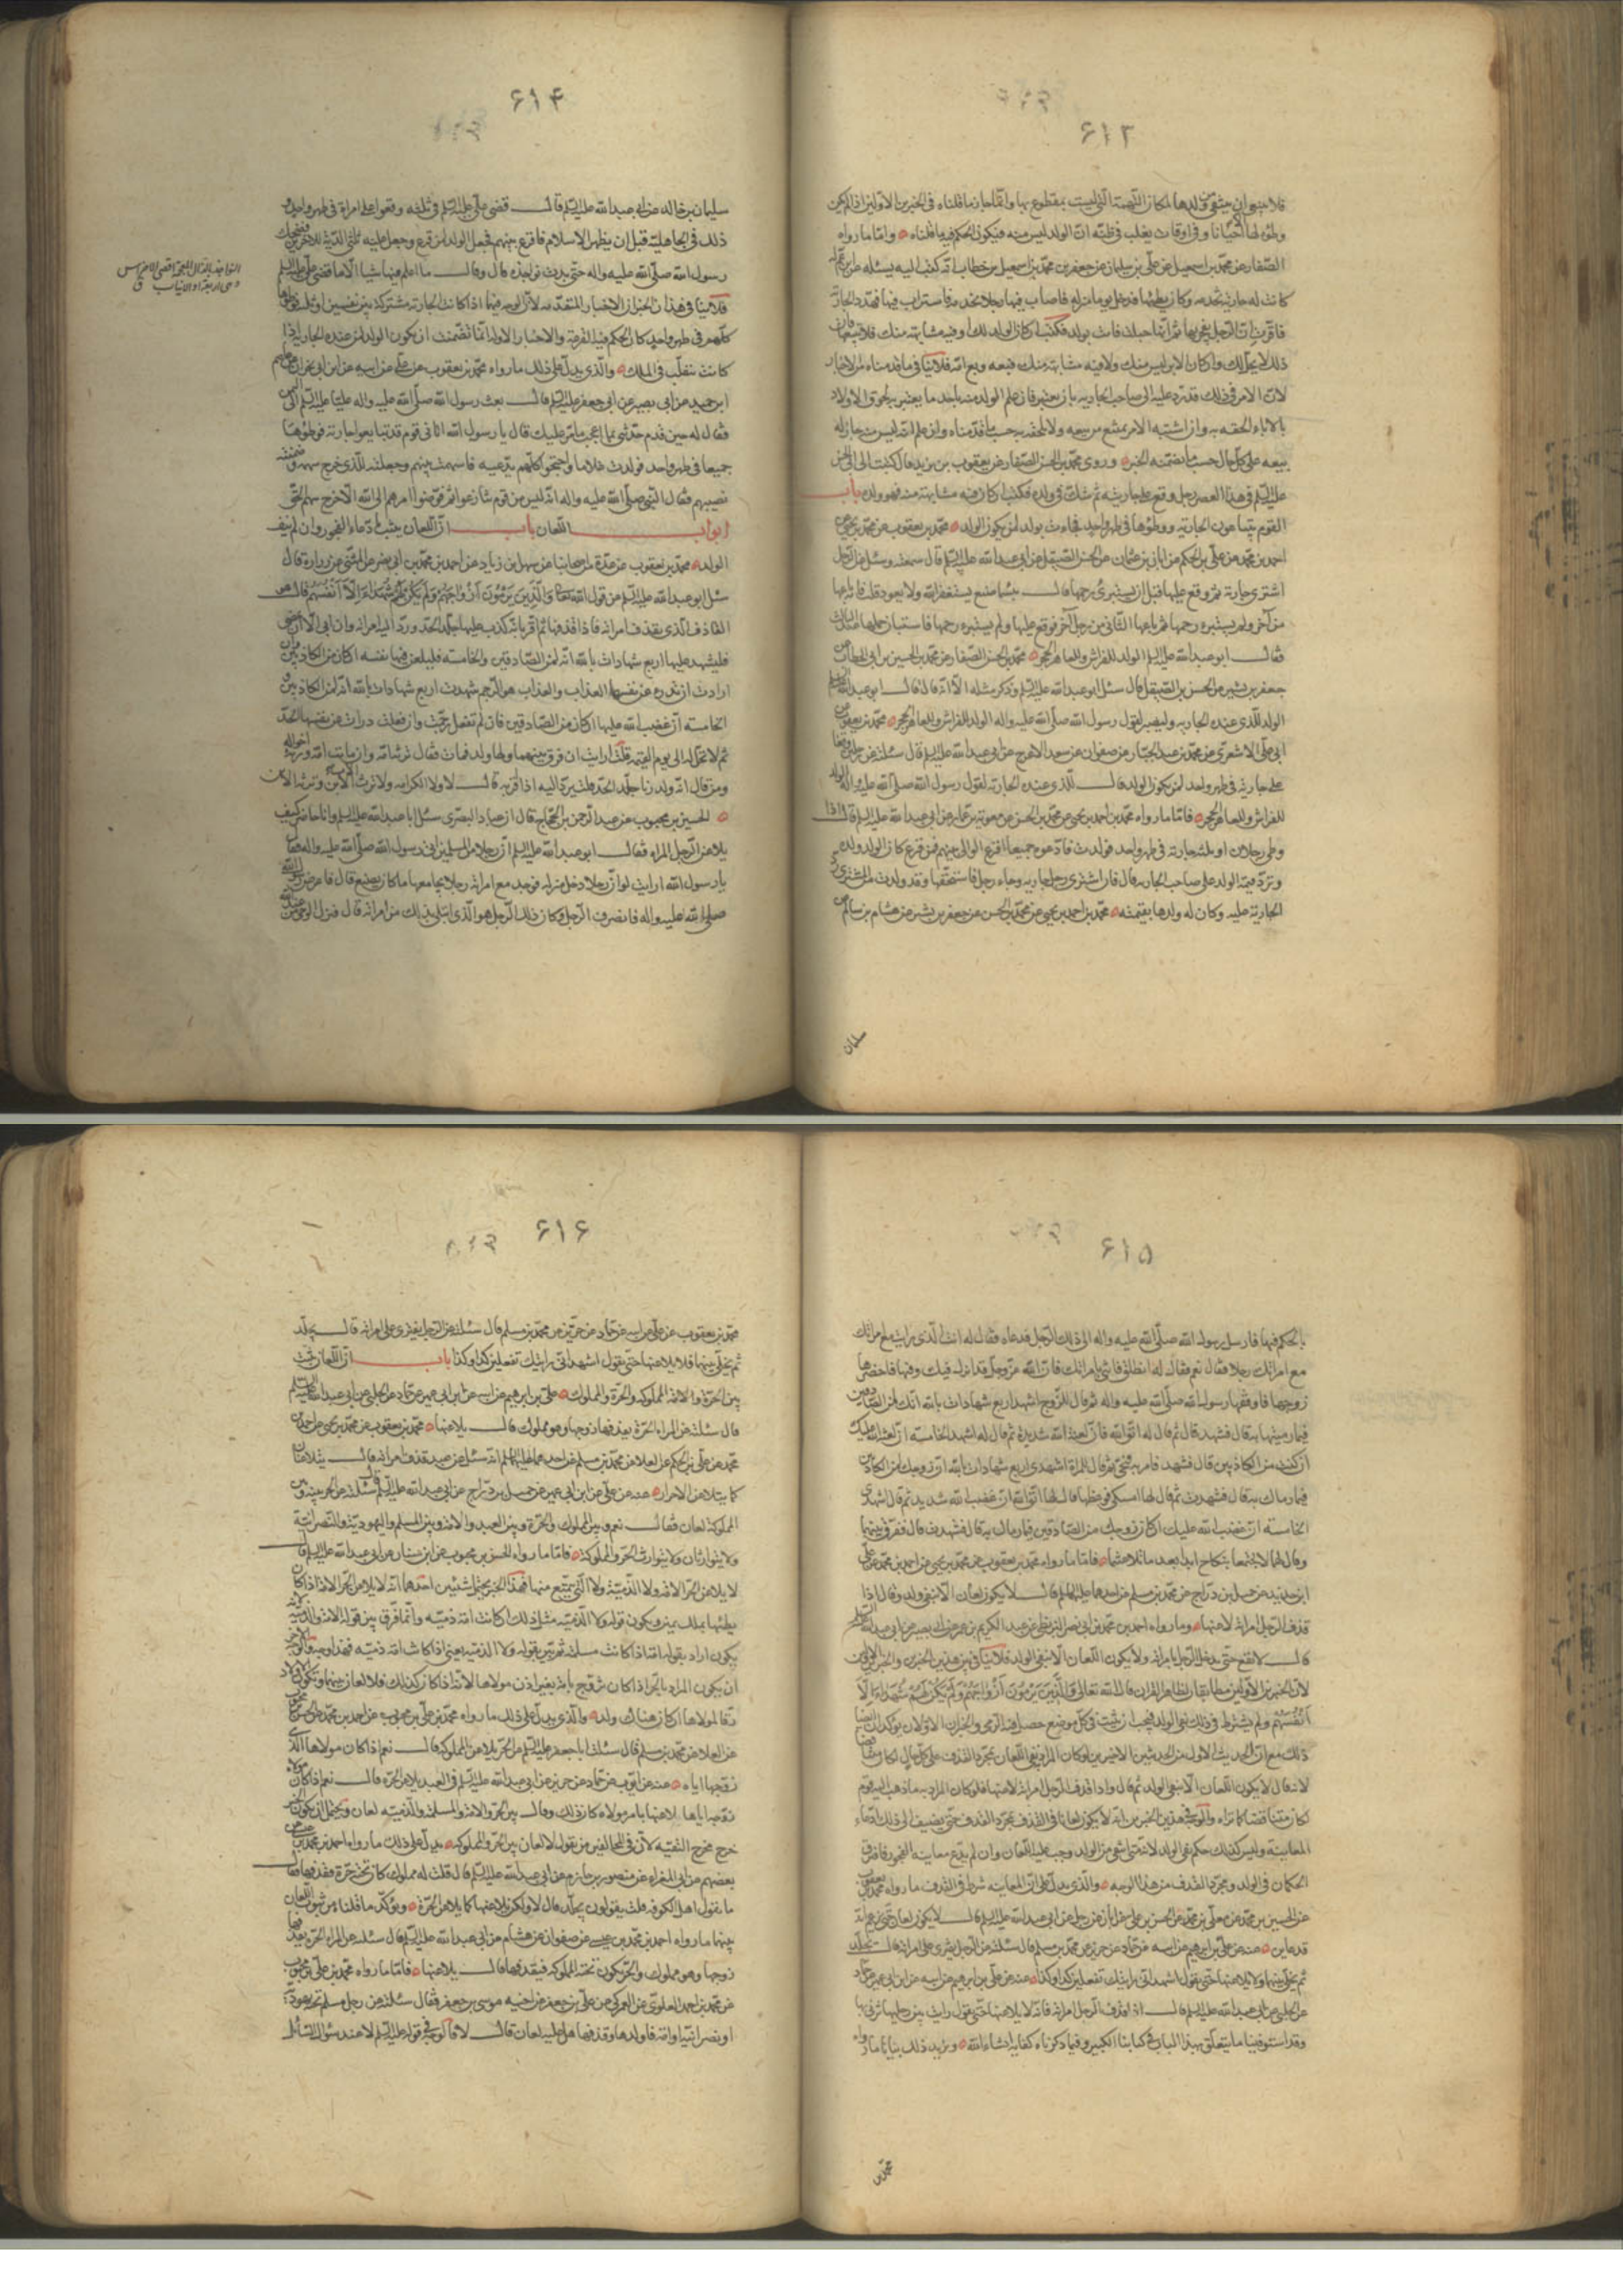 ۶۱۳
فلا يمتنع ان ينتفي ولدها لمكان التهمة التي ليست بمقطوع بها وانما جاز ما قلناه في الخبرين الاولين اذا لم يكن
وطؤه لها احيانا وفي اوقات يغلب في ظنه ان الولد ليس منه فيكون الحكم فيه ما قلناه واما ما رواه
الصفار عن محمد بن اسمعيل عن علي بن سليمان عن جعفر بن محمد بن اسمعيل بن خطاب انه كتب اليه يسئله عن ابن عم له
كانت له جارية تخدمه وكان يطئها فدخل يوما منزله فاصاب فيها رجلا تخدمه فاستراب فيها فهدد الجارية
فاقرت ان الرجل فجر بها ثم انها حبلت فاتت بولد فكتب ان كان الولد لك او فيه مشابهة منك فلا تبعهما فان
ذلك لا يحل لك وان كان الابن ليس منك ولا فيه مشابهة منك فبعه وبع امه فلا ينافي ما قدمناه من الاخبار
لان الامر في ذلك قد رد عليه الى صاحب الجارية بان يعتبر فان علم الولد منه باحد ما يعتبر به لحوق الاولاد
بالاباء الحقه به وان اشتبه الامر يمتنع من بيعه ولا يلحقه به حسب ما قدمناه وان علم انه ليس منه جاز له
بيعه على كل حال حسب ما تضمنه الخبر وروى محمد بن الحسن الصفار عن يعقوب بن يزيد قال كتبت الى ابي الحسن
عليه السلم في هذا العصر رجل وقع على جاريته ثم شك في ولده فكتب ان كان فيه مشابهة منه فهو ولده باب
القوم يتبايعون الجارية ووطؤها في طهر واحد فجاءت بولد لمن يكون الولد محمد بن يعقوب عن محمد بن يحيى عن
احمد بن محمد عن علي بن الحكم عن ابان بن عثمان عن الحسن الصيقل عن ابي عبد الله عليه السلم قال سمعته وسئل عن رجل
اشترى جارية ثم وقع عليها قبل ان يستبرئ رحمها قال بئس ما صنع يستغفر الله ولا يعود قلت فان باعها
من آخر ولم يستبرء رحمها ثم باعها الثاني من رجل آخر فوقع عليها ولم يستبرء رحمها فاستبان حملها عند الثالث
فقال ابو عبد الله عليه السلم الولد للفراش وللعاهر الحجر محمد بن الحسن الصفار عن محمد بن الحسين بن ابي الخطاب عن
جعفر بن بشير عن الحسن الصيقل قال سئل ابو عبد الله عليه السلم وذكر مثله الا انه قال قال ابو عبد الله عليه السلم
الولد للذي عنده الجارية وليصبر لقول رسول الله صلى الله عليه واله الولد للفراش وللعاهر الحجر محمد بن يعقوب عن
ابي علي الاشعري عن محمد بن عبد الجبار عن صفوان عن سعيد الاعرج عن ابي عبد الله عليه السلم قال سئلته عن رجلين وقعا
على جارية في طهر واحد لمن يكون الولد قال للذي عنده الجارية لقول رسول الله صلى الله عليه واله الولد
للفراش وللعاهر الحجر فاما ما رواه محمد بن احمد بن يحيى عن محمد بن الحسن عن معوية بن عمار عن ابي عبد الله عليه السلم قال اذا
وطى رجلان او ثلثة جارية في طهر واحد فولدت فادعوه جميعا اقرع الوالي بينهم فمن قرع كان الولد ولده
وترد قيمة الولد على صاحب الجارية قال فان اشترى رجل جارية وجاء رجل فاستحقها وقد ولدت من المشتري رد
الجارية عليه وكان له ولدها بقيمته محمد بن احمد بن يحيى عن محمد بن الحسن عن جعفر بن بشير عن هشام بن سالم عن
سليمان
۶۱۴
سليمان بن خالد عن ابي عبد الله عليه السلم قال قضى علي عليه السلم في ثلثة وقعوا على امراة في طهر واحد و
ذلك في الجاهلية قبل ان يظهر الاسلام فاقرع بينهم فجعل الولد لمن قرع وجعل عليه ثلثي الدية للاخرين فضحك
رسول الله صلى الله عليه واله حتى بدت نواجذه قال وقال ما اعلم فيها شيئا الا ما قضى علي عليه السلم
فلا ينافي هذان الخبران الاخبار المتقدمة لان الوجه فيهما اذا كانت الجارية مشتركة بين نفسين او ثلثة فوطئوها
كلهم في طهر واحد كان الحكم فيه القرعة والاخبار الاولة انما تضمنت ان يكون الولد لمن عنده الجارية اذا
كانت تنقلب في الملك والذي يدل على ذلك ما رواه محمد بن يعقوب عن علي عن ابيه عن ابن ابي نجران عن عاصم
ابن حميد عن ابي بصير عن ابي جعفر عليه السلم قال بعث رسول الله صلى الله عليه واله عليا عليه السلم الى اليمن
فقال له حين قدم حدثني باعجب ما مر عليك قال يا رسول الله اتاني قوم قد تبايعوا جارية فوطؤها
جميعا في طهر واحد فولدت غلاما واحتجوا كلهم يدعيه فاسهمت بينهم وجعلته للذي خرج سهمه وضمنته
نصيبهم فقال النبي صلى الله عليه واله انه ليس من قوم تنازعوا ثم فوضوا امرهم الى الله الا خرج سهم المحق
ابواب اللعان باب ان اللعان يثبت بادعاء الفجور وان لم ينف
الولد محمد بن يعقوب عن عدة من اصحابنا عن سهل بن زياد عن احمد بن محمد بن ابي نصر عن المثنى عن زرارة قال
سئل ابو عبد الله عليه السلم عن قول الله تعالى والذين يرمون ازواجهم ولم يكن لهم شهداء الا انفسهم قال هو
القاذف الذي يقذف امراته فاذا قذفها ثم اقر بانه كذب عليها جلد الحد ورد اليه امراته وان ابى الا ان يمضي
فليشهد عليها اربع شهادات بالله انه لمن الصادقين والخامسة فليلعن فيها نفسه ان كان من الكاذبين وان
ارادت ان تدرء عن نفسها العذاب والعذاب هو الرجم شهدت اربع شهادات بالله انه لمن الكاذبين و
الخامسة ان غضب الله عليها ان كان من الصادقين فان لم تفعل رجمت وان فعلت درات عن نفسها الحد
ثم لا تحل له الى يوم القيمة قلت ارايت ان فرق بينهما ولها ولد فمات فقال ترثه امه وان ماتت امه ورثه اخواله
ومن قال انه ولد زنا جلد الحد قلت يرد اليه اذا اقر به قال لا ولا كرامة ولا يرث الاب الابن وترثه الابن
الحسن بن محبوب عن عبد الرحمن بن الحجاج قال ان عباد البصري سئل ابا عبد الله عليه السلم وانا حاضر كيف
يلاعن الرجل المراة فقال ابو عبد الله عليه السلم ان رجلا من المسلمين اتى رسول الله صلى الله عليه واله فقال
يا رسول الله ارايت لو ان رجلا دخل منزله فوجد مع امراته رجلا يجامعها ما كان يصنع قال فاعرض عنه رسول الله
صلى الله عليه واله فانصرف الرجل وكان ذلك الرجل هو الذي ابتلي بذلك من امراته قال فنزل الوحي من عند الله
۶۱۵
بالحكم فيها فارسل رسول الله صلى الله عليه واله الى ذلك الرجل فدعاه فقال له انت الذي رايت مع امراتك
مع امراتك رجلا فقال نعم فقال له انطلق فائتني بامراتك فان الله عز وجل قد انزل فيك وفيها فاحضرها
زوجها فاوقفها رسول الله صلى الله عليه واله ثم قال للزوج اشهد اربع شهادات بالله انك لمن الصادقين
فيما رميتها به قال فشهد قال ثم قال له اتق الله فان لعنة الله شديدة ثم قال له اشهد الخامسة ان لعنة الله عليك
ان كنت من الكاذبين قال فشهد فامر به فنحي ثم قال للمراة اشهدي اربع شهادات بالله ان زوجك لمن الكاذبين
فيما رماك به قال فشهدت ثم قال لها امسكي فوعظها فقال لها اتقي الله ان غضب الله شديد ثم قال اشهدي
الخامسة ان غضب الله عليك ان كان زوجك من الصادقين فيما رماك به قال فشهدت قال ففرق بينهما
وقال لهما لا تجتمعا بنكاح ابدا بعد ما تلاعنتما فاما ما رواه محمد بن يعقوب عن محمد بن يحيى عن احمد بن محمد عن علي
ابن حديد عن جميل بن دراج عن محمد بن مسلم عن احدهما عليهما السلم قال لا يكون لعان الا بنفي ولد وقال اذا
قذف الرجل امراته لاعنها وما رواه احمد بن محمد بن ابي نصر البزنطي عن عبد الكريم بن عمرو عن ابي بصير عن ابي عبد الله عليه السلم
قال لا يقع حتى يدخل الرجل بامراته ولا يكون اللعان الا بنفي الولد فلا ينافي هذين الخبرين والخبرين الاولين
لان الخبرين الاولين مطابقان لظاهر القران قال الله تعالى والذين يرمون ازواجهم ولم يكن لهم شهداء الا
انفسهم ولم يشترط في ذلك نفي الولد فيجب ان يثبت في كل موضع حصل فيه الرمي والخبران الاولان يؤكدان ايضا
ذلك مع ان الحديث الاول من الحديثين الاخيرين لو كان المراد نفي اللعان بمجرد القذف على كل حال لكان متناقضا
لانه قال لا يكون اللعان الا بنفي الولد ثم قال واذا قذف الرجل امراته لاعنها فلو كان المراد به ما ذهب اليه قوم
لكان متناقضا كما تراه والوجه في هذين الخبرين انه لا يكون لعانا في القذف بمجرد القذف حتى يضيف الى ذلك ادعاء
المعاينة وليس كذلك حكم نفي الولد لانه متى انتفى من الولد وجب عليه اللعان وان لم يدع معاينة الفجور فافترق
الحكمان في الولد ومجرد القذف من هذا الوجه والذي يدل على ان المعاينة شرط في القذف ما رواه محمد بن يعقوب
عن الحسين بن محمد عن معلى بن محمد عن الحسن بن علي عن ابان عن رجل عن ابي عبد الله عليه السلم قال لا يكون لعان حتى يزعم انه
قد عاين عنه عن علي بن ابراهيم عن ابيه عن حماد عن حريز عن محمد بن مسلم قال سئلته عن الرجل يفترى على امراته قال يجلد
ثم يخلى بينهما ولا يلاعنها حتى يقول اشهد اني رايتك تفعلين كذا وكذا عنه عن علي بن ابراهيم عن ابيه عن ابن ابي عمير عن حماد
عن الحلبي عن ابي عبد الله عليه السلم قال اذا قذف الرجل امراته فانه لا يلاعنها حتى يقول رايت بين رجليها رجلا يزني بها
وقد استوفينا ما يتعلق بهذا الباب في كتابنا الكبير وفيما ذكرناه كفاية انشاء الله ويزيد ذلك بيانا ما رواه
محمد بن
۶۱۶
محمد بن يعقوب عن علي عن ابيه عن حماد عن حريز عن محمد بن مسلم قال سئلته عن الرجل يفترى على امراته قال يجلد
ثم يخلى بينهما فلا يلاعنها حتى يقول اشهد اني رايتك تفعلين كذا وكذا باب ان اللعان يثبت
بين الحر والامة المملوكة والحرة والمملوك علي بن ابرهيم عن ابيه عن ابن ابي عمير عن حماد عن الحلبي عن ابي عبد الله عليه السلم
قال سئلته عن المراة الحرة يقذفها زوجها وهو مملوك قال يلاعنها محمد بن يعقوب عن محمد بن يحيى عن احمد بن
محمد عن علي بن الحكم عن العلا عن محمد بن مسلم عن احدهما عليهما السلم انه سئل عن عبد قذف امراته قال يتلاعنان
كما يتلاعن الاحرار عنه عن علي عن ابن ابي عمير عن جميل بن دراج عن ابي عبد الله عليه السلم قال سئلته عن الحر بينه وبين
المملوكة لعان فقال نعم وبين المملوك والحرة وبين العبد والامة وبين المسلم واليهودية والنصرانية
ولا يتوارثان ولا يتوارث الحر والمملوكة فاما ما رواه الحسن بن محبوب عن ابن سنان عن ابي عبد الله عليه السلم قال
لا يلاعن الحر الامة ولا الذمية ولا التي يتمتع منها فهذا الخبر يحتمل شيئين احدهما انه لا يلاعن الحر الامة اذا كان
يطئها بملك يمين ويكون قوله ولا الذمية مثل ذلك ان كانت امة ذمية وانما فرق بين قوله الامة والذمية لانه
يكون اراد بقوله امة اذا كانت مسلمة ثم بين بقوله ولا الذمية يعني اذا كانت امة ذمية فهذا وجه والوجه الاخر
ان يكون المراد بالخبر اذا كان تزوج بامة بغير اذن مولاها لانه اذا كان كذلك فلا لعان بينهما وتكون الاولاد
رقا لمولاها ان كان هناك ولد والذي يدل على ذلك ما رواه محمد بن علي بن محبوب عن احمد بن محمد عن الحسن بن محبوب
عن العلا عن محمد بن مسلم قال سئلت ابا جعفر عليه السلم عن الحر يلاعن المملوكة قال نعم اذا كان مولاها الذي
زوجها اياه عنه عن ايوب عن حماد عن حريز عن ابي عبد الله عليه السلم في العبد يلاعن الحرة قال نعم اذا كان مولاه
زوجه اياها لاعنها بامر مولاه كان ذلك وقال بين الحر والامة والمسلم والذمية لعان ويحتمل ان يكون الخبر
خرج مخرج التقية لان في المخالفين من يقول لا لعان بين الحر والمملوكة يدل على ذلك ما رواه احمد بن محمد بن عيسى عن
بعضهم عن ابي المغراء عن منصور بن حازم عن ابي عبد الله عليه السلم قال قلت له مملوك كان تحته حرة فقذفها فقال
ما يقول اهل الكوفة قلت يقولون يجلد قال لا ولكن يلاعنها كما يلاعن الحرة ويؤكد ما قلناه من ثبوت اللعان
بينهما ما رواه احمد بن محمد بن عيسى عن صفوان عن هشام عن ابي عبد الله عليه السلم قال سئلته عن المراة الحرة يقذفها
زوجها وهو مملوك والحر يكون تحته المملوكة فيقذفها قال يلاعنها فاما ما رواه محمد بن علي بن محبوب
عن محمد بن احمد العلوي عن العمركي عن علي بن جعفر عن اخيه موسى بن جعفر فقال سئلته عن رجل مسلم تحته يهودية
او نصرانية او امة فاولدها وقذفها هل عليه لعان قال لا فالوجه في قوله عليه السلم لا عند سؤال السائل